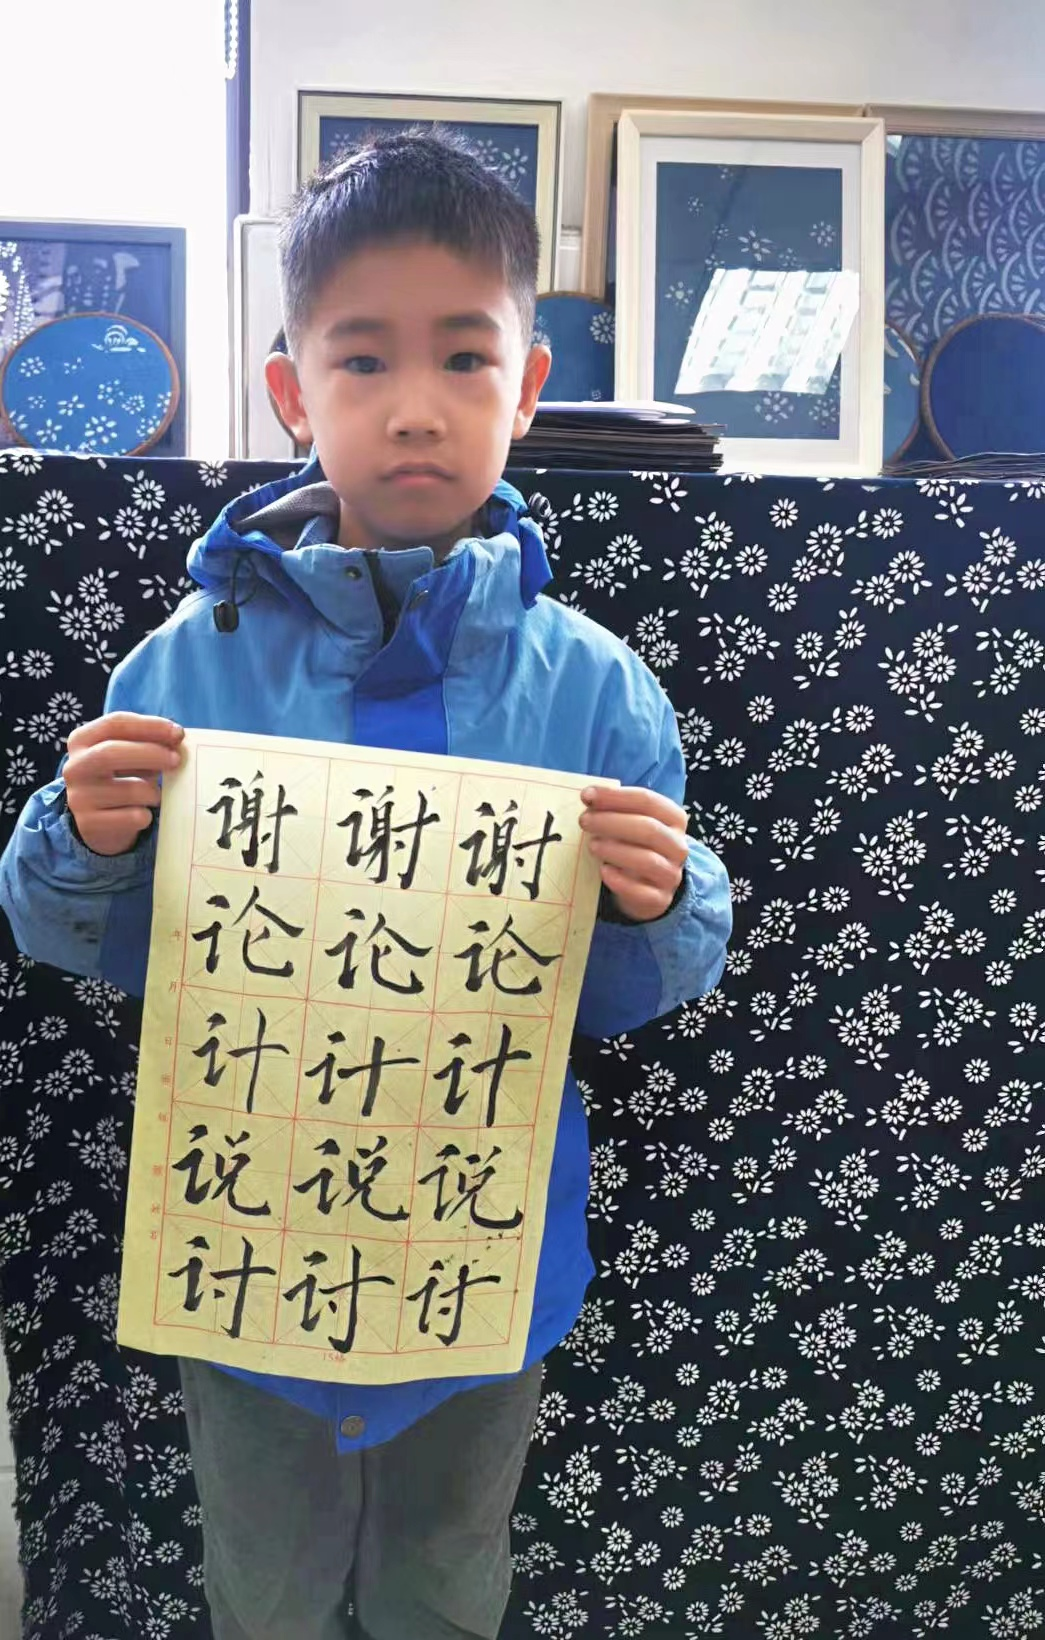 谢谢谢
论论论
计计计
说说说
讨讨讨
年
月
日
15格